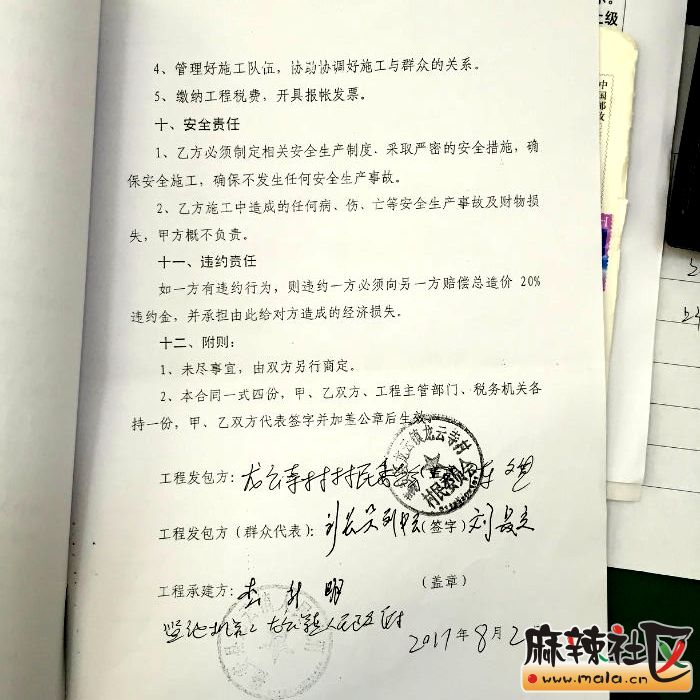 4、管理好施工队伍，协动协调好施工与群众的关系。
5、缴纳工程税费，开具报帐发票。
十、安全责任
1、乙方必须制定相关安全生产制度、采取严密的安全措施，确
保安全施工，确保不发生任何安全生产事故。
2、乙方施工中造成的任何病、伤、亡等安全生产事故及财物损
失，甲方概不负责。
十一、违约责任
如一方有违约行为，则违约一方必须向另一方赔偿总造价 20%
违约金，并承担由此给对方造成的经济损失。
十二、附则：
1、未尽事宜，由双方另行商定。
2、本合同一式四份，甲、乙双方、工程主管部门、税务机关各
持一份，甲、乙双方代表签字并加盖公章后生效
龙云镇龙云寺村
村民委员会
工程发包方：龙云寺村村民委
工程发包方（群众代表）：(签字)
工程承建方：李 明 （盖章）
2017年8月2
麻辣社区
www.mala.cn
中国邮政
上级